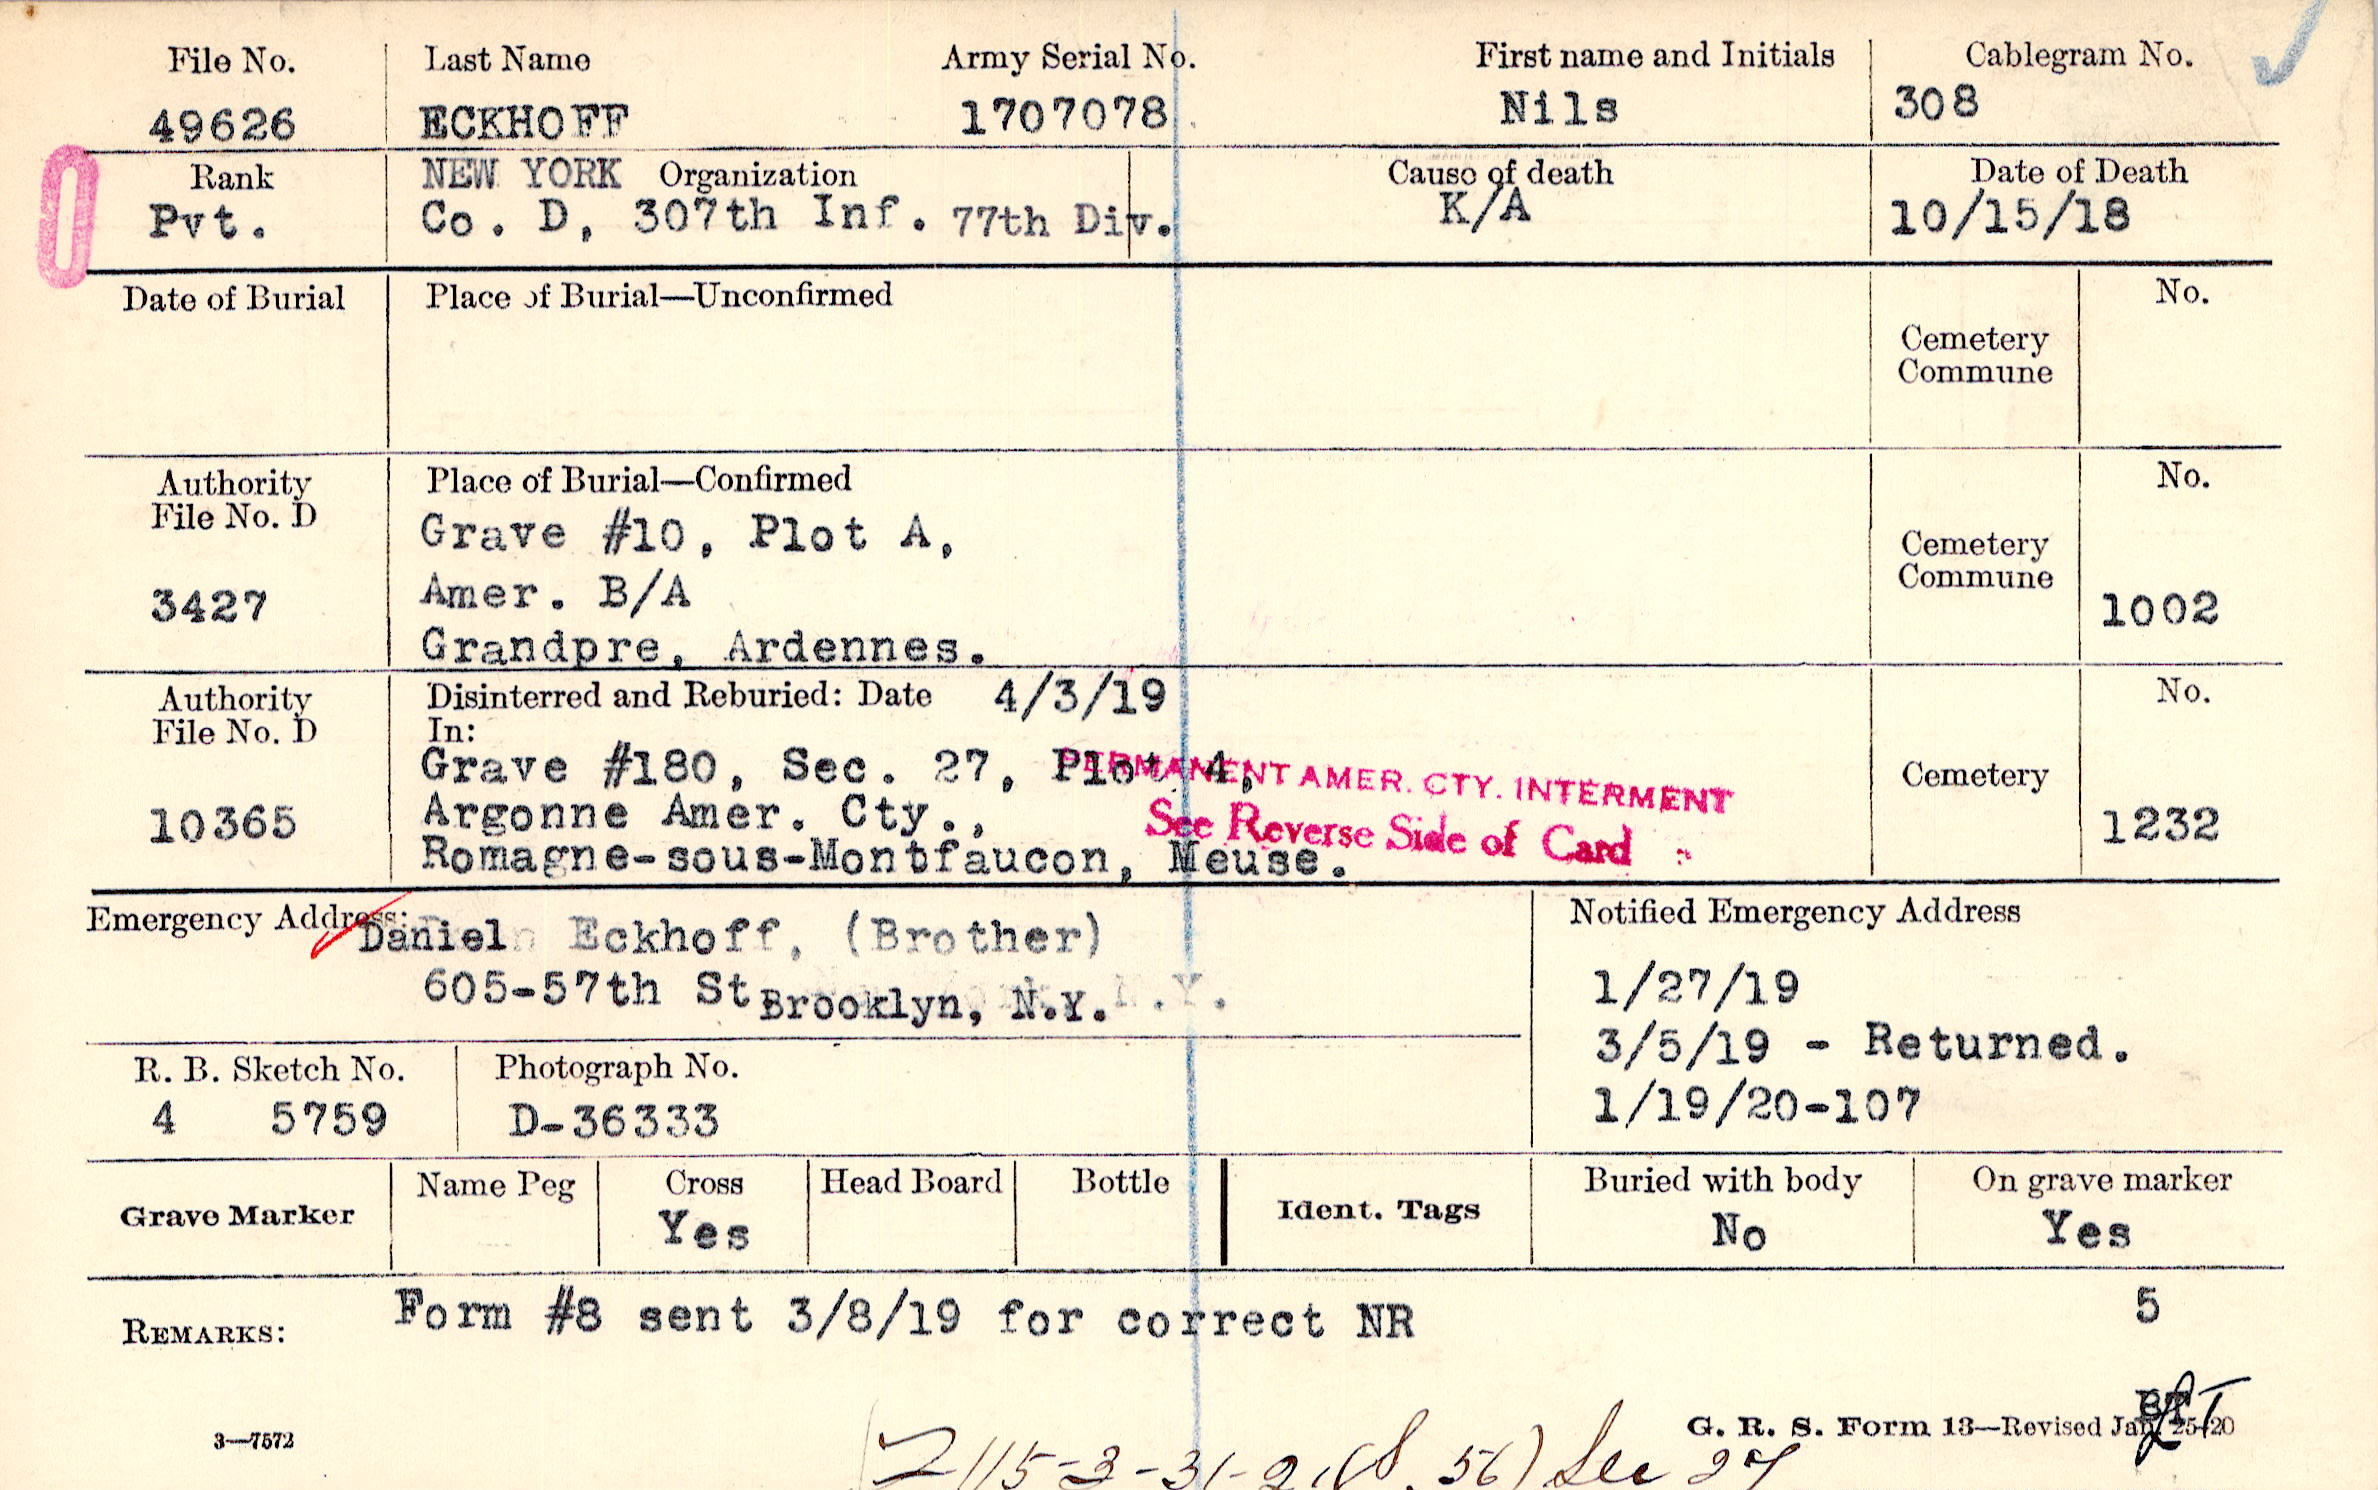 File No. Last Name Army Serial No. First name and Initials Cablegram No.
49626 ECKHOFF 1707078 Nils 308
Rank NEW YORK Organization Cause of death Date of Death
Pvt. Co. D, 307th Inf. 77th Div. K/A 10/15/18
Date of Burial Place of Burial—Unconfirmed No.
Cemetery
Commune
Authority Place of Burial—Confirmed No.
File No. D Grave #10, Plot A,
Cemetery
Commune
3427 Amer. B/A 1002
Grandpre, Ardennes.
Authority Disinterred and Reburied: Date 4/3/19 No.
File No. D In:
Grave #180, Sec. 27, Plot 4, Cemetery
PERMANENT AMER. CTY. INTERMENT
10365 Argonne Amer. Cty., 1232
See Reverse Side of Card
Romagne-sous-Montfaucon, Meuse.
Emergency Address: Notified Emergency Address
Daniel Eckhoff, (Brother)
605-57th St Brooklyn, N.Y. 1/27/19
3/5/19 - Returned.
R. B. Sketch No. Photograph No.
4 5759 D-36333 1/19/20-107
Grave Marker Name Peg Cross Head Board Bottle Ident. Tags Buried with body On grave marker
Yes No Yes
REMARKS: Form #8 sent 3/8/19 for correct NR 5
3—7572 G. R. S. Form 13—Revised Jan. 25-20
Sec 27